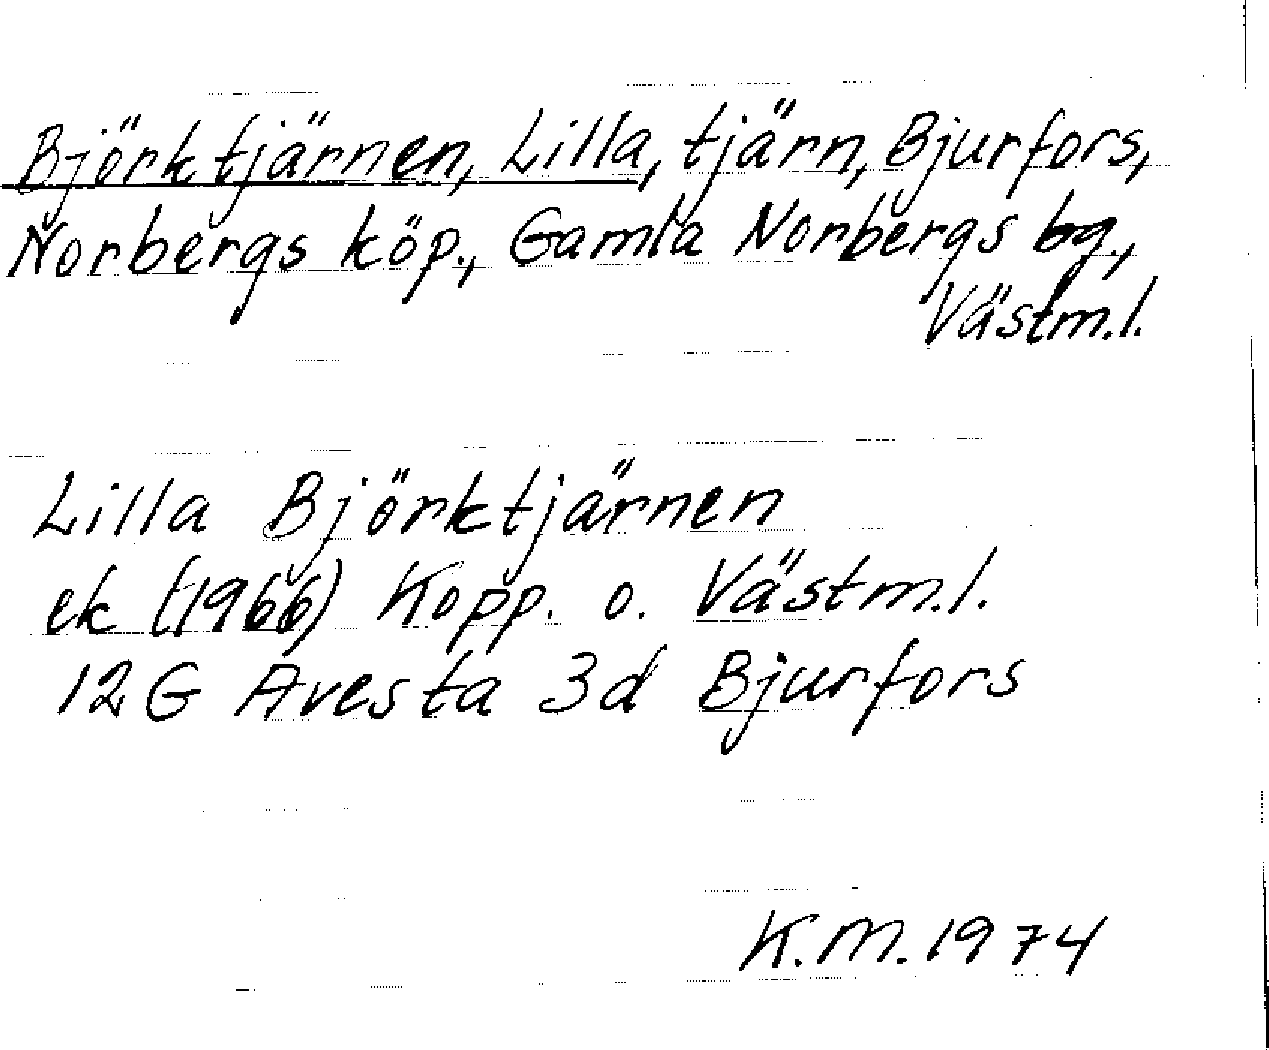 Björktjärnen, Lilla, tjärn, Bjurfors,
Norbergs köp., Gamla Norbergs bg.,
Västm.l.
Lilla Björktjärnen
ek (1966) Kopp. o. Västm.l.
12G Avesta 3d Bjurfors
K.M. 1974